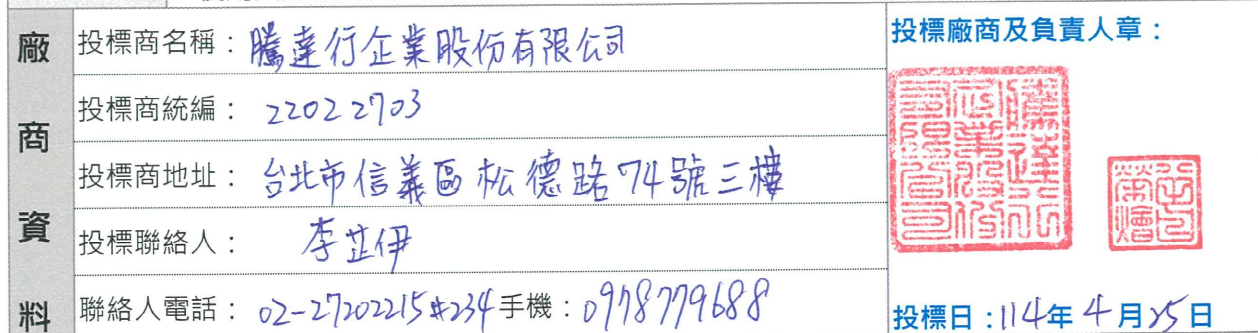 廠商資料
投標商名稱：騰達行企業股份有限公司
投標商統編：22022703
投標商地址：台北市信義區松德路74號三樓
投標聯絡人：李芷伊
聯絡人電話：02-27202215#234手機：0978779688
投標廠商及負責人章：
騰達行企業股份有限公司
投標日：114年4月25日